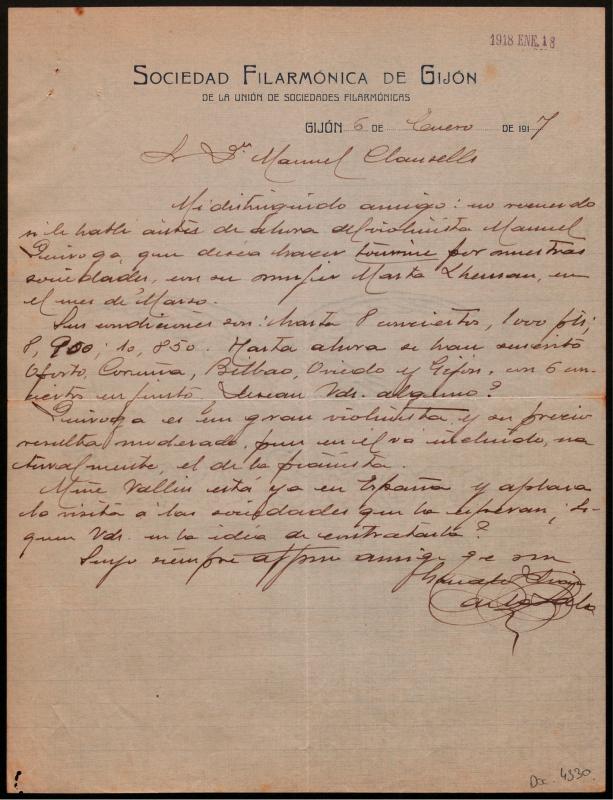 1918 ENE. 18
SOCIEDAD FILARMÓNICA DE GIJÓN
DE LA UNIÓN DE SOCIEDADES FILARMÓNICAS
GIJÓN 6 DE Enero DE 1917
Sr Dn Manuel Clausells
Mi distinguido amigo: no recuerdo
si le hablé antes de ahora del violinista Manuel
Quiroga, que desea hacer tournée por nuestras
sociedades, con su mujer Marta Lheman, en
el mes de Marzo.
Sus condiciones son: hasta 8 conciertos, 1000 pts;
8, 900; 10, 850. Hasta ahora se han suscrito
Oporto, Coruña, Bilbao, Oviedo y Gijón, con 6 con
ciertos en junto. Desean Vds. alguno?
Quiroga es un gran violinista y su precio
resulta moderado, pues en él vá incluido, na
turalmente, el de la pianista.
Mme Vallin está ya en España y aplaza
la visita á las sociedades que la esperan; Si-
guen Vds. en la idea de contratarla?
Suyo siempre affmo amigo q e s m
Doc. 4330